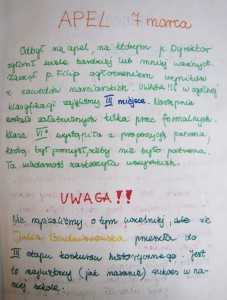 APEL 7 marca
Odbył się apel, na którym p. Dyrektor
ogłosił wiele bardziej lub mniej ważnych
zaczął p. Filip ogłoszeniem wyników
z zawodów narciarskich. UWAGA!!! w ogólnej
klasyfikacji zajęliśmy III miejsce. Następnie
zostało załatwionych kilka spraw formalnych.
klasa VI wystąpiła z propozycją patrona,
który, był pomysł, żeby nie było patrona.
Ta wiadomość zaskoczyła wszystkich.
UWAGA!!
Nie napisaliśmy o tym wcześniej, ale że
Julia przeszła do
III etapu konkursu historycznego. Jest
to największy (jak narazie) sukces w na-
szej szkole.